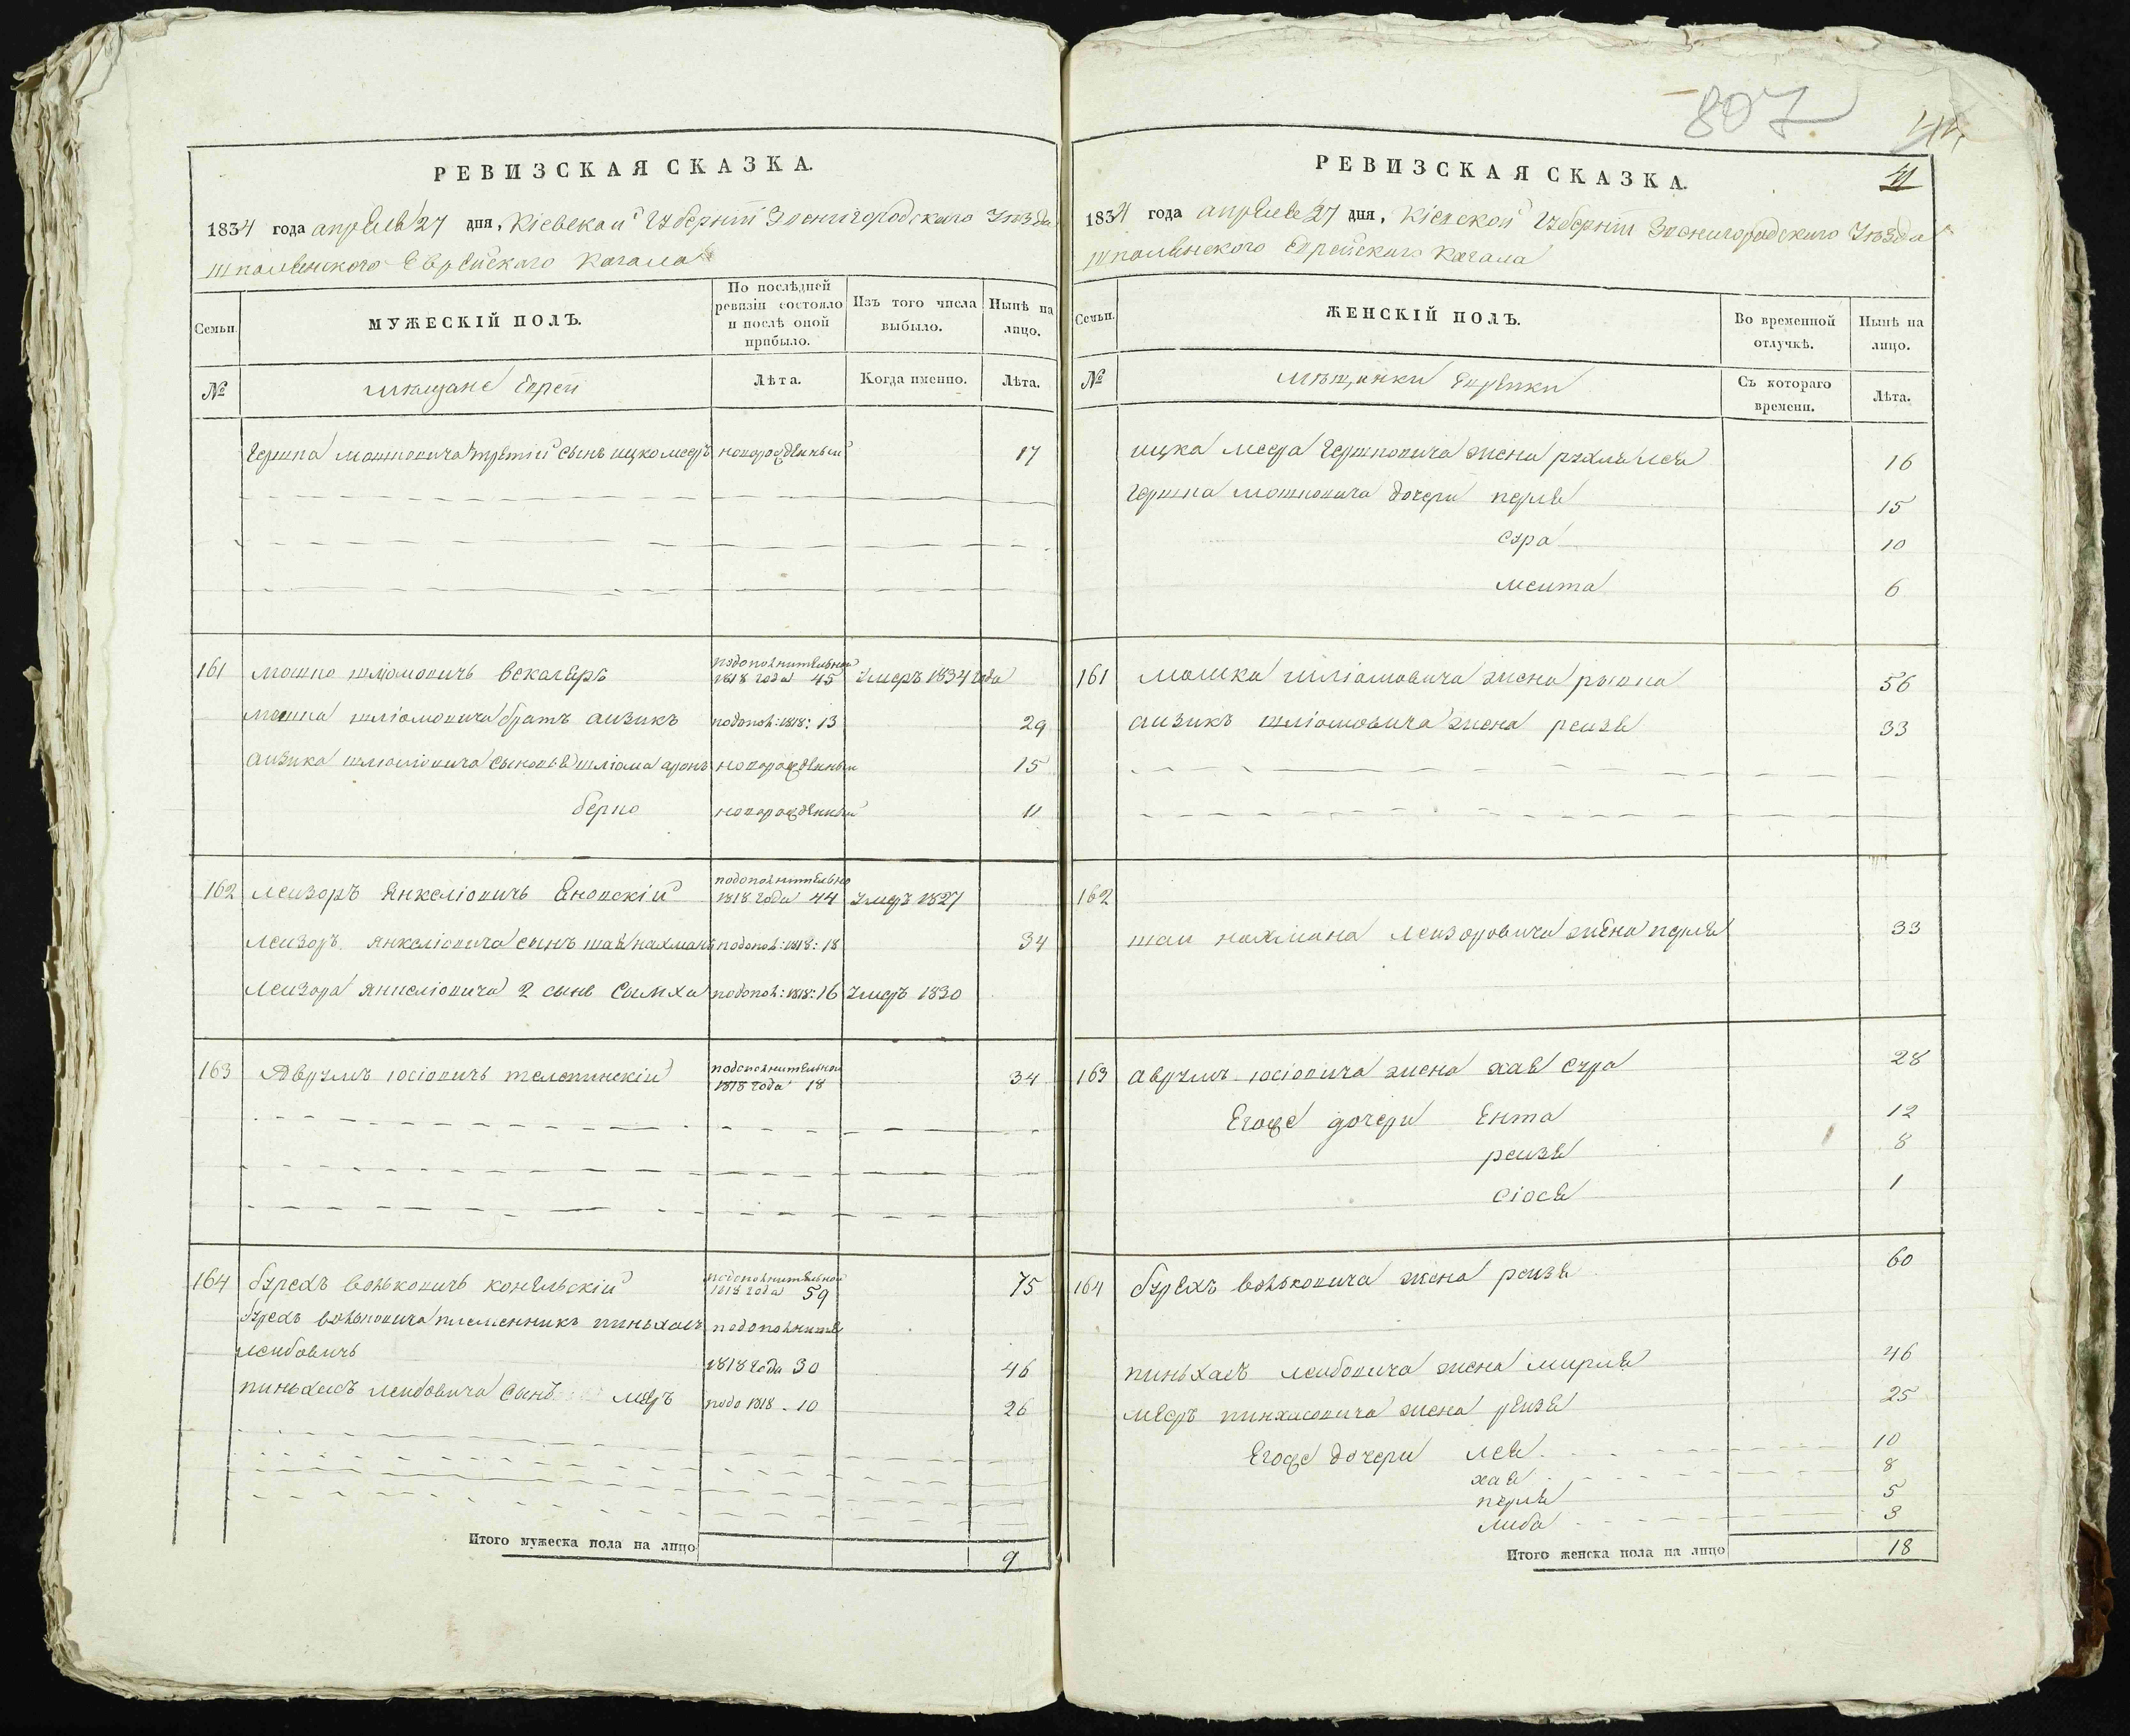 РЕВИЗСКАЯ СКАЗКА.
1834 года апреля 27 дня, Кіевской Губерніи Звенигородского Уѣзда
шполянского Еврейского Кагала
Семьи.
МУЖЕСКІЙ ПОЛЪ.
По послѣдней ревизіи состояло и послѣ оной прибыло.
Изъ того числа выбыло.
Ныне на лицо.
№
мѣщане Евреи
Лѣта.
Когда именно.
Лѣта.
Гершка мошковича третій сынъ ицко мееръ новорожденный 17
161 мошко шліомовичь векслеръ подополнительной 1818 года 45 Умеръ 1834 года
мошка шліомовича братъ аизикъ подопол: 1818: 13 29
аизика шліомовича сыновья шліома аронъ новорожденный 15
берко новорожденный 11
162 леизоръ Янкеліовичь Еновскій подополнительно 1818 года 44 Умеръ 1827
леизоръ янкеліовича сынъ шая нахманъ подопол: 1818: 18 34
леизора янкеліовича 2 сынъ Сымха подопол: 1818: 16 Умеръ 1830
163 Аврумъ іосіовичь телепинскій подополнительной 1818 года 18 34
164 бурехъ вольковичь конельскій подополнительной 1818 года 59 75
бурехъ вольковича племенникъ пиньхасъ подополните
леибовичь 1818 года 30 46
пиньхасъ леибовича сынъ меръ подо 1818 - 10 26
Итого мужеска пола на лицо 9
807
41
РЕВИЗСКАЯ СКАЗКА.
1834 года апреля 27 дня, Кіевской Губерніи Звенигородского Уѣзда
шполянского Еврейского Кагала
Семьи.
ЖЕНСКІЙ ПОЛЪ.
Во временной отлучкѣ.
Ныне на лицо.
№
мѣщанки Еврейки
Съ котораго времени.
Лѣта.
ицка меера Гершковича жена рухля лея 16
Гершка мошковича дочери перля 15
сура 10
меита 6
161 мошка шліомовича жена рывка 56
аизикъ шліомовича жена реизя 33
162
шаи нахмана леизоровича жена перля 33
163 аврумъ іосіовича жена хая сура 28
Егоже дочери Ента 12
реизя 8
сіося 1
164 бурехъ вольковича жена реизя 60
пиньхасъ леибовича жена мирля 46
мееръ пинхасовича жена реизя 25
Егоже дочери лея 10
хая 8
перля 5
либа 3
Итого женска пола на лицо 18